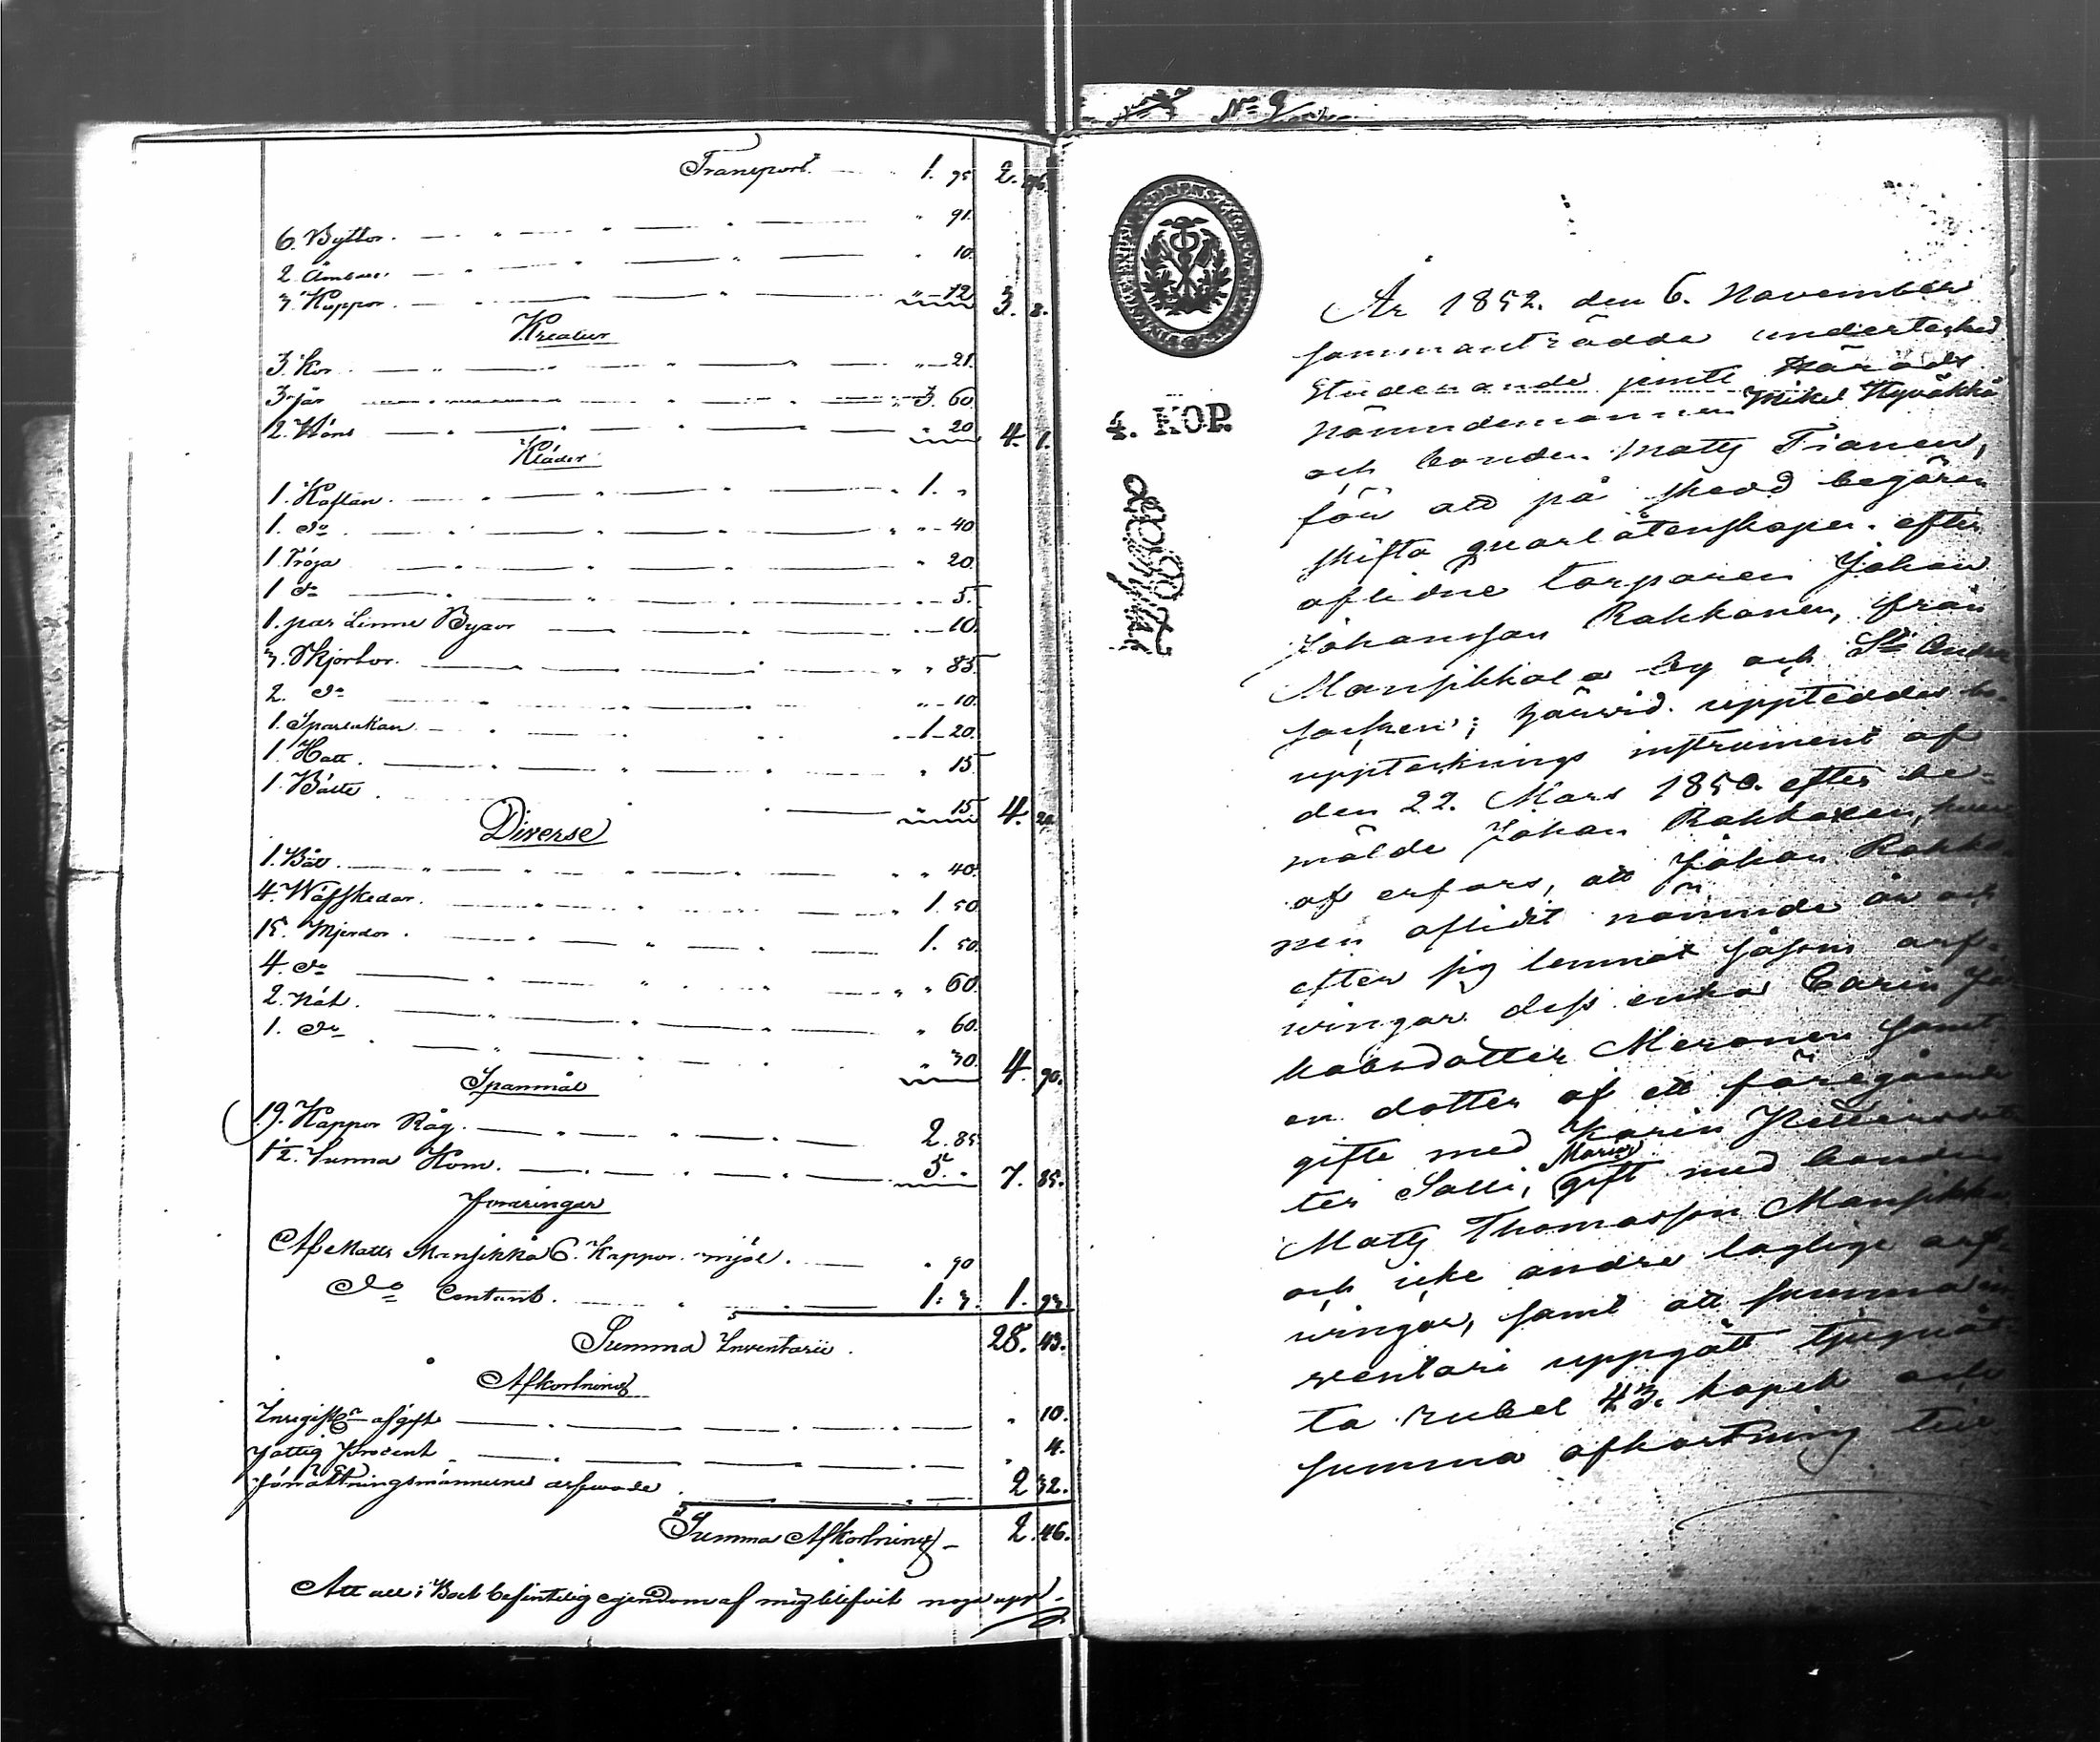 Transport 1. 95 2. 96.
6. Byttor. " 91.
2. Ämbare. " 10.
3. Koppor. " 12 3. 8.
Kreatur
3. Kor " 21.
3 får 3. 60
2. Höns " 20 4. 1.
Kläder
1. Kaftan. 1. "
1. do " 40
1. Tröja " 20
1 do " 5.
1. par Linne Byxor " 10.
3. Skjortor. " 85
2. do " 10.
1. 1 20.
1. Hatt. " 15
1. Bälte. " 15 4. 20.
Diverse
1. Båt. " 40.
4. Wäfskedar. 1. 50
15. Mjerdor. 1. 50.
4. do " 60
2. Nät. " 60.
1. do " 30. 4. 90.
Spanmål
19. Kappor Råg. 2. 85
1½. Tunna Korn. 5. " 7. 85.
Fordringar
Af Matts Mansikka 6. Kappor mjöl. " 90
Do Contant. 1: 3. 1. 93
Summa Inventarii. 28. 43.
Afkortning
afgift " 10.
Fattig Procent " 4.
Förrättningsmännernes arfwode 2 32.
Summa Afkortning 2. 46.
Att all i Boet befintelig egendom af mig blifvit noga upp-
No 9
4. KOP.
År 1852. den 6. November
sammanträdde undertecknad
Studerande jemte Härads
Nämndemannen Mikel Hyväkkä
och bonden Matts Tianen,
för att på skedd begäran
skifta quarlåtenskapen efter
aflidne torparen Johan
Johansson Rakkanen, från
Mansikkala by och St Andræ
socken; härvid uppteddes bo-
upptecknings instrument af
den 22. Mars 1850. efter be-
mälde Johan Rakkanen, hvar
af erfors, att Johan Rakka-
nen aflidit nämnde år och
efter sig lemnat såsom arf-
wingar dess enka Carin Ja-
kobsdotter Meronen samt
en dotter af ett föregående
gifte med Karin
ter Salli, Maria gift med bonden
Matts Thomasson Mansikka,
och icke andre laglige arf-
wingar, samt att summa in
ventarii uppgått tjuguåt-
ta rubel 43. kopek och
summa afkortning till